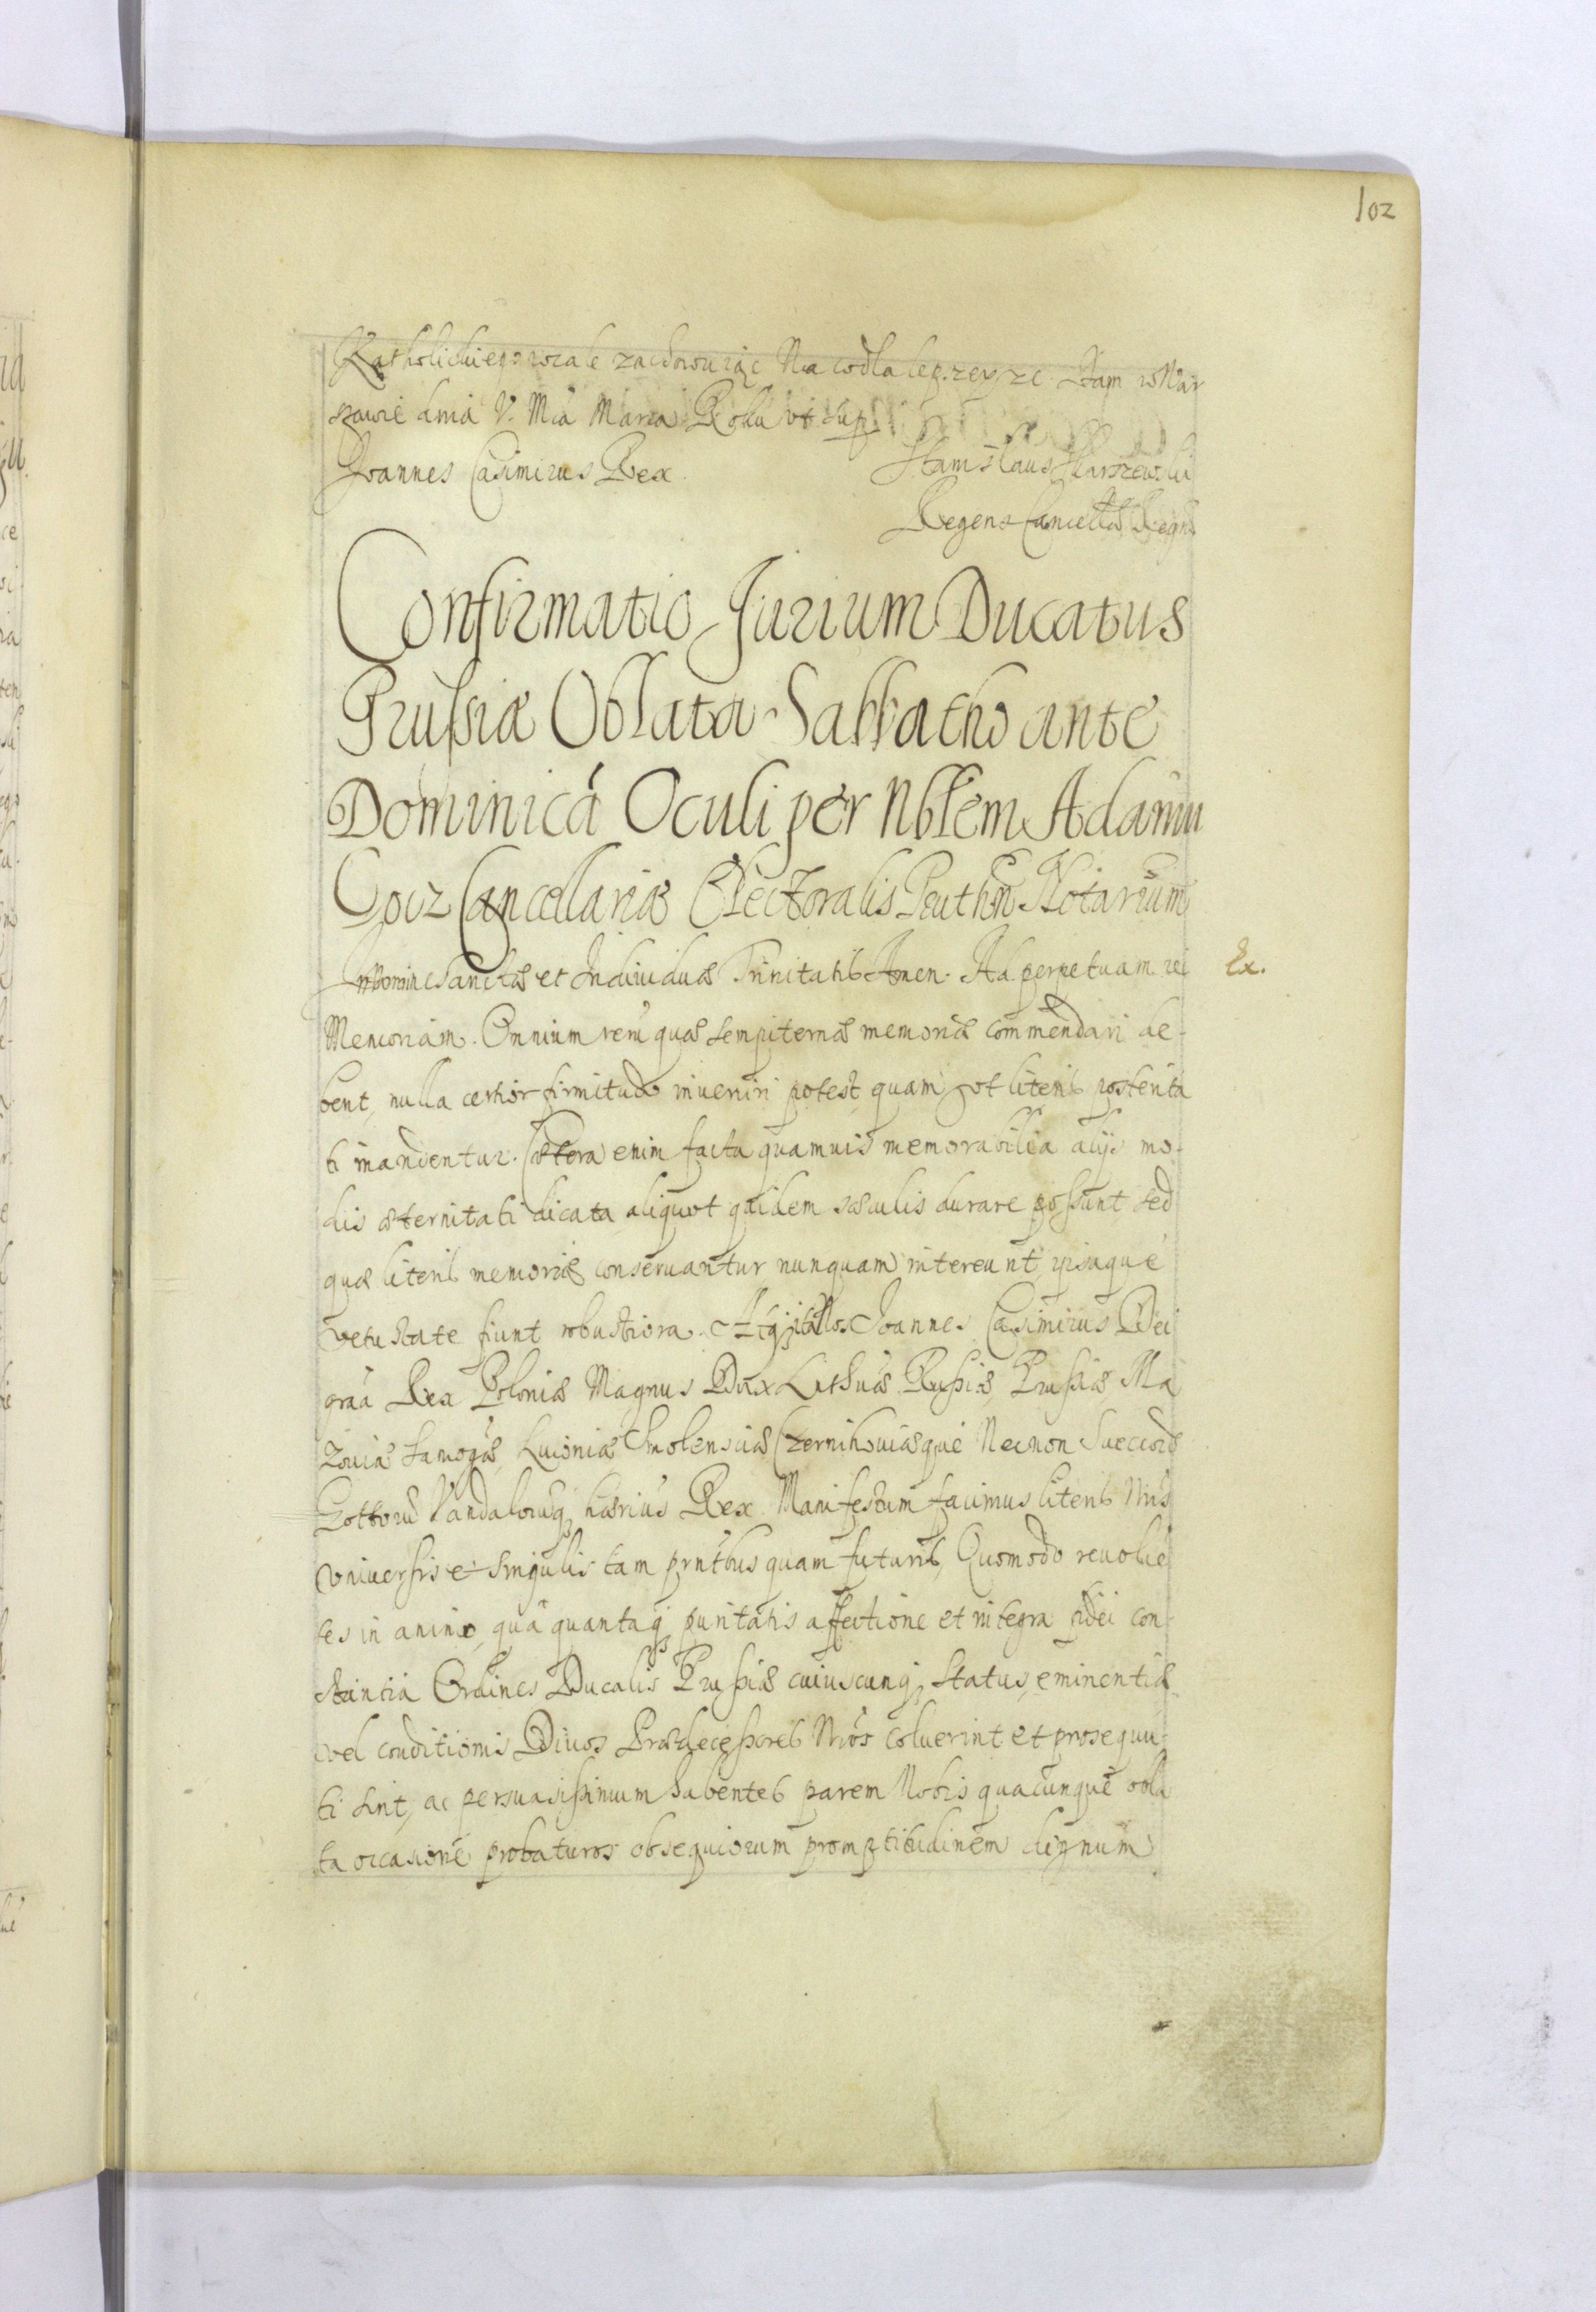 102
Katholickiego wcale zachowuiąc Na co dla lep.zey ze Dam w War
szawie dnia V. Mca Marca Roku vt sup
Joannes Casimirus Rex
Stanislaus Skarszewski
Regens Cancellae Regni
Confirmatio Jurium Ducatus
Prussiæ Oblata Sabbatho ante
Dominicá Oculi per Nblem Adamu
Cancellariæ Electoralis Notarium
In Nomine Sanctæ et Indiuiduæ Trinitatis Amen. Ad perpetuam rei
Ex.
Memoriam. Omnium reru quæ sempiternæ memoriæ commendari de-
bent, nulla certior firmitudo inueniri potest, quam vt literis posterita
ti mandentur. Cætera enim facta quamuis memorabilia alijs mo-
dis æternitati dicata aliquot quidem sæculis durare possunt sed
quæ literis memoriæ conseruantur nunquam intereunt, ipsaque
vetustate fiunt robustiora. Atq; ita Nos Joannes Casimirus Dei
graa Rex Poloniæ Magnus Dux Lithuæ Russiæ, Prussiæ, Ma
zouiæ Samogæ, Liuoniæ Smolensciæ Czernihouiæque Necnon Suecoru
Gottoru Vandaloruq; hærius Rex. Manifestum facimus literis Nris
vniuersis et singulis tam prntbus quam futuris, Quomodo reuolue
tes in animo, qua quantaq; puritatis affectione et integra fidei con-
stantia Ordines Ducalis Prussiæ cuiuscunq; status, eminentiæ
vel conditionis Diuos Prædecessores Nros coluerint et prosequu-
ti sint, ac persuasissimum habentes parem Nobis quacunque obla
ta occasione probaturos obsequiorum promptitudinem dignum